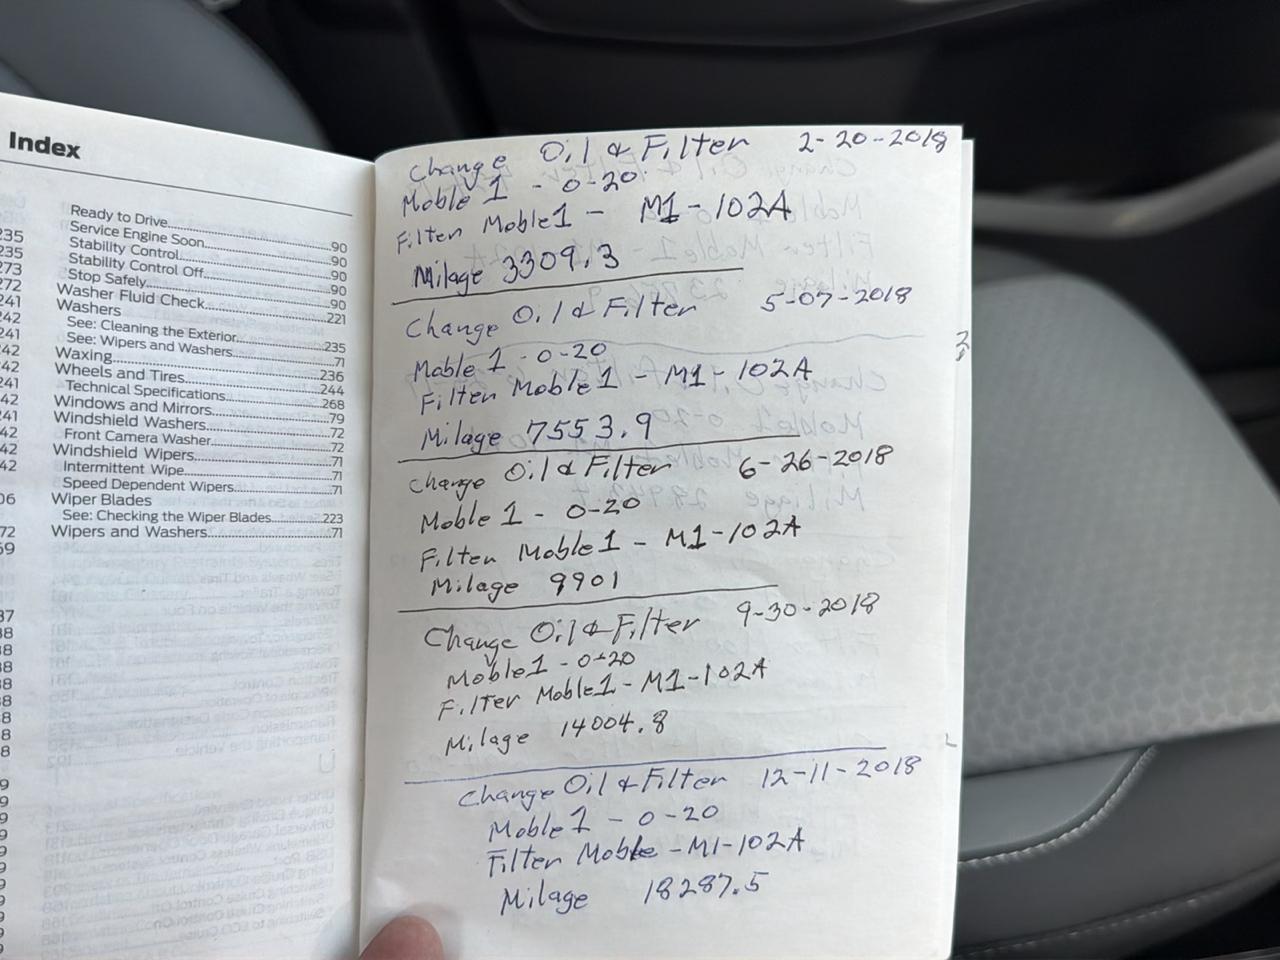 Index
Ready to Drive
Service Engine Soon.....90
Stability Control.....90
Stability Control Off.....90
Stop Safely.....90
Washer Fluid Check.....221
Washers
See: Cleaning the Exterior.....235
See: Wipers and Washers.....71
Waxing.....236
Wheels and Tires.....244
Technical Specifications.....268
Windows and Mirrors.....79
Windshield Washers.....72
Front Camera Washer.....72
Windshield Wipers.....71
Intermittent Wipe.....71
Speed Dependent Wipers.....71
Wiper Blades
See: Checking the Wiper Blades.....223
Wipers and Washers.....71
Change Oil & Filter 2-20-2018
Moble 1 - 0-20
Filter Moble 1 - M1-102A
Milage 3309.3
Change Oil & Filter 5-07-2018
Moble 1 - 0-20
Filter Moble 1 - M1-102A
Milage 7553.9
Change Oil & Filter 6-26-2018
Moble 1 - 0-20
Filter Moble 1 - M1-102A
Milage 9901
Change Oil & Filter 9-30-2018
Moble 1 - 0-20
Filter Moble 1 - M1-102A
Milage 14004.8
Change Oil & Filter 12-11-2018
Moble 1 - 0-20
Filter Moble - M1-102A
Milage 18287.5